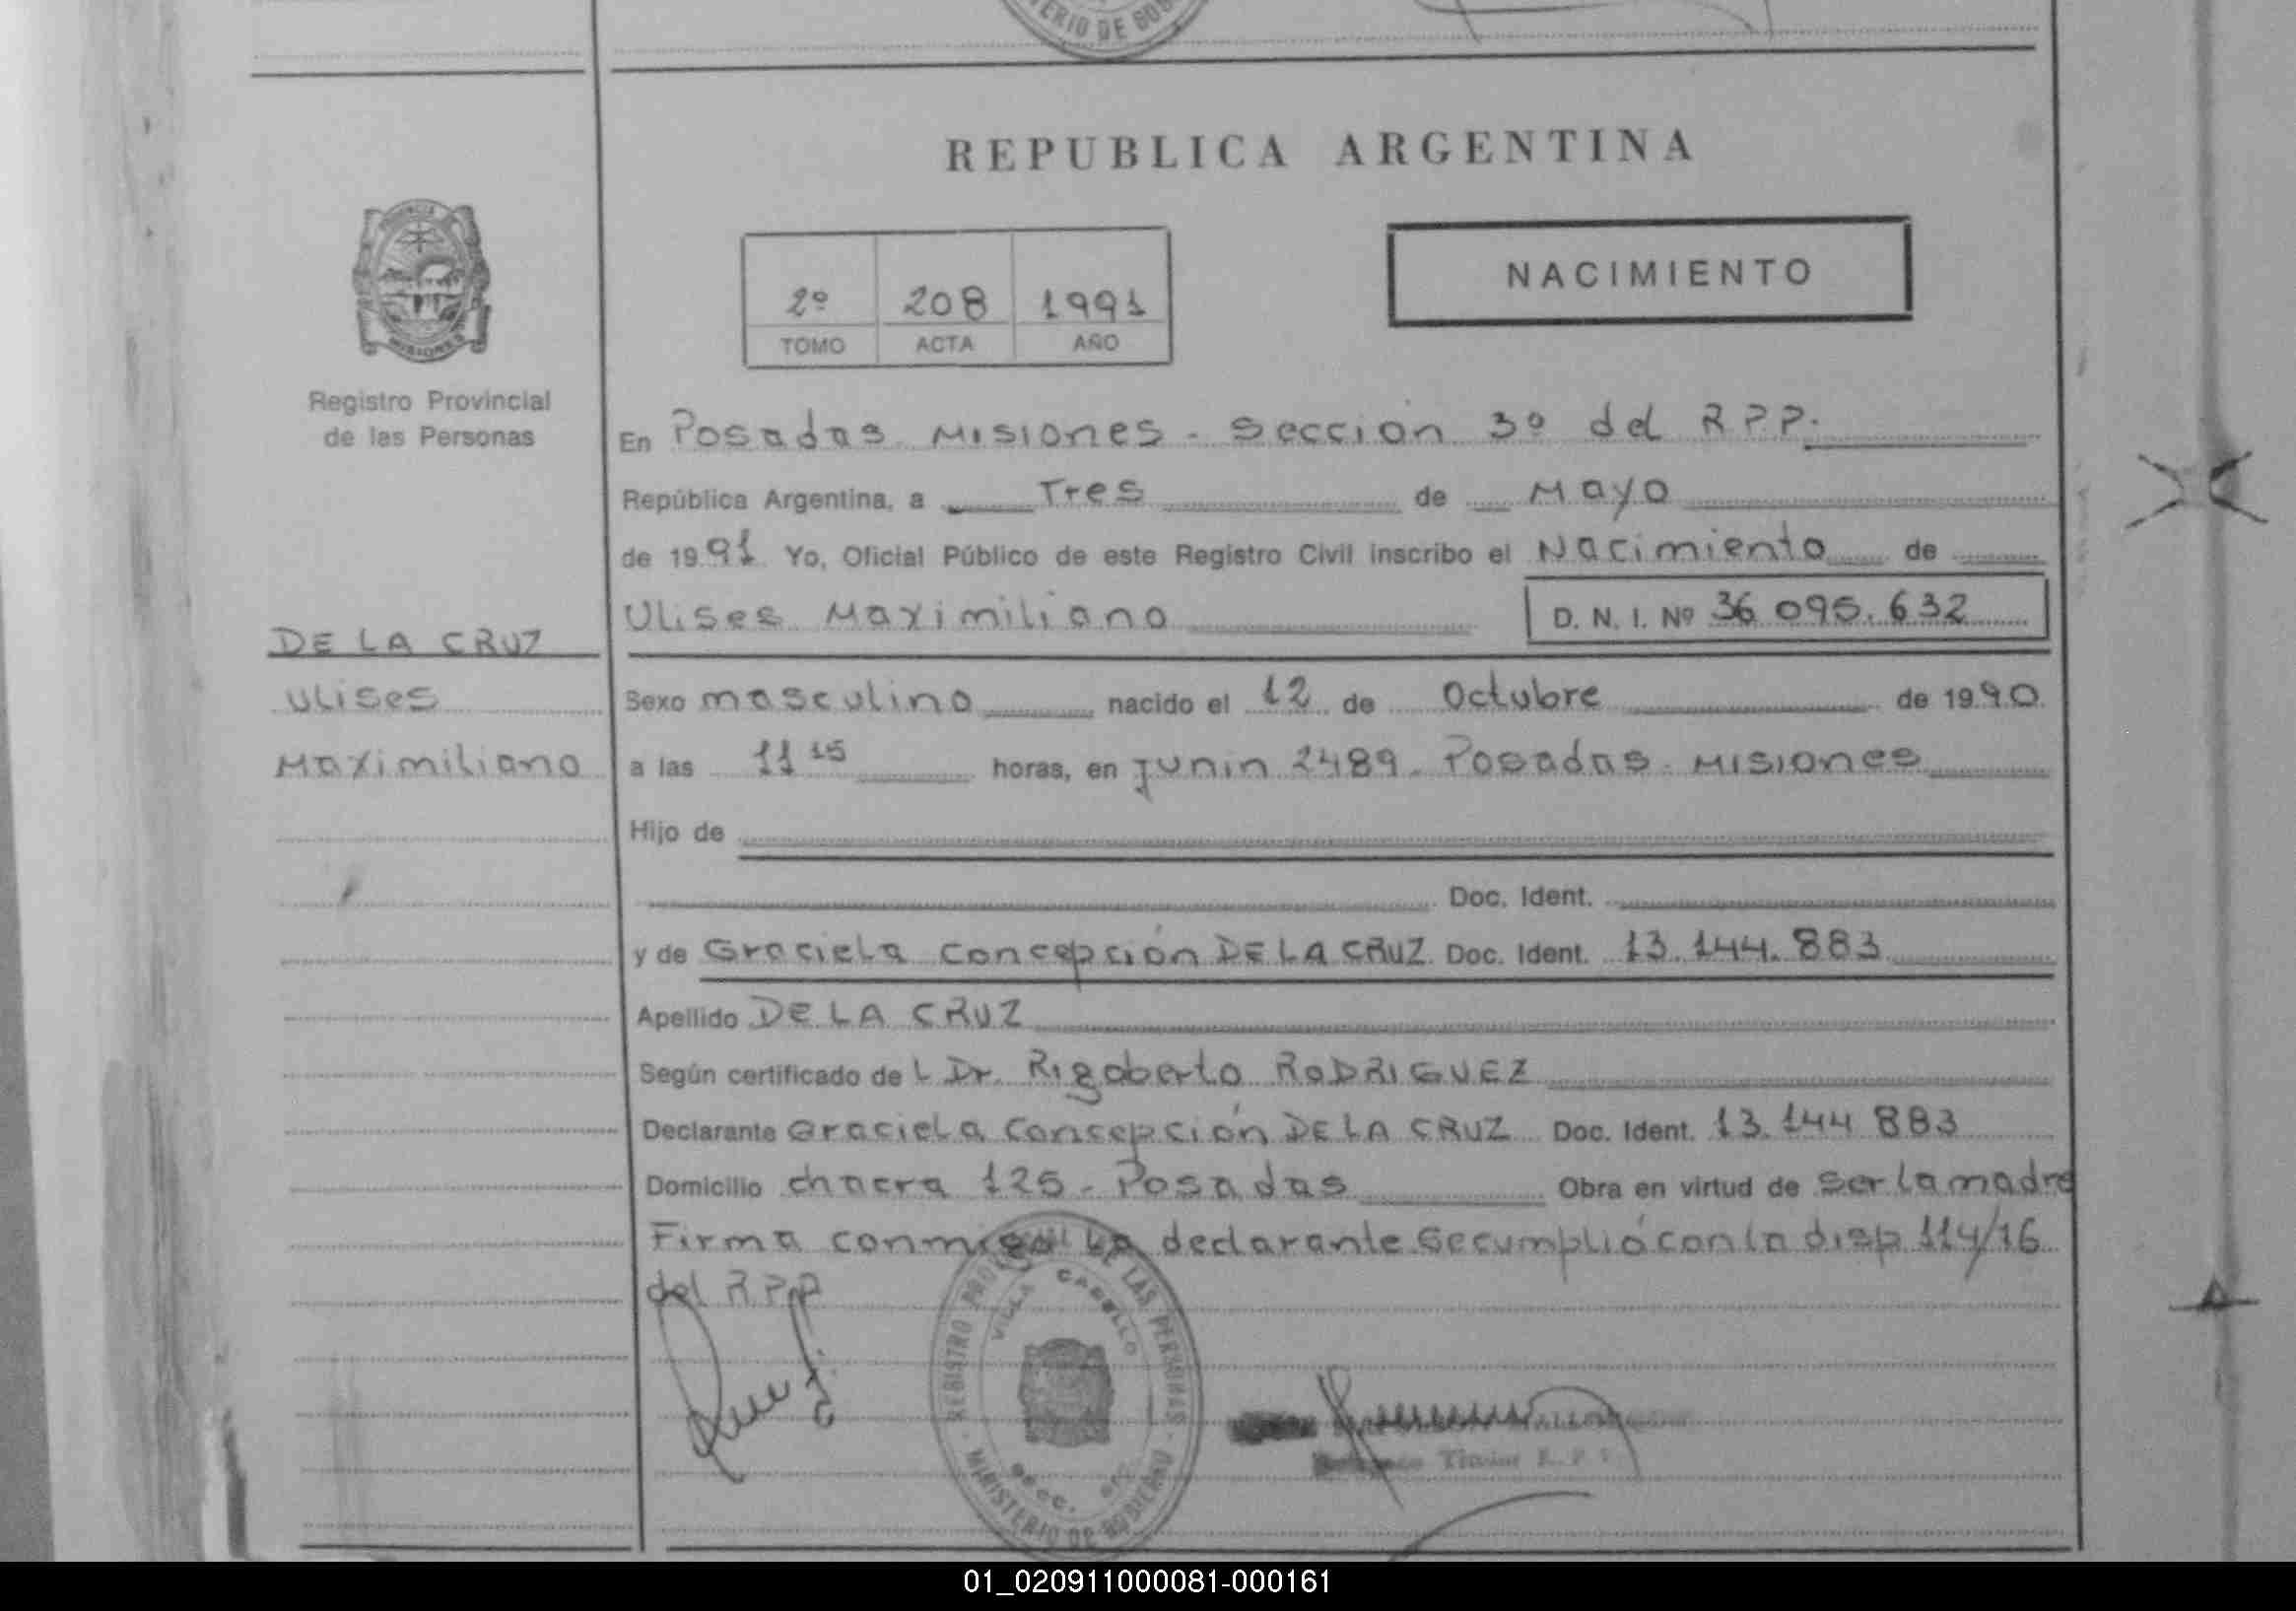 MINISTERIO DE GOB
REPUBLICA ARGENTINA
2º 208 1991
TOMO ACTA AÑO
NACIMIENTO
MISIONES
Registro Provincial
de las Personas
En Posadas Misiones - Seccion 3º del R.P.P.
República Argentina, a Tres de Mayo
de 1991 Yo, Oficial Público de este Registro Civil inscribo el Nacimiento de
Ulises Maximiliano D. N. I. Nº 36 095.632
DE LA CRUZ
Ulises
Maximiliano
Sexo masculino nacido el 12 de Octubre de 1990
a las 11 15 horas, en Junin 2489. Posadas. Misiones
Hijo de
Doc. Ident.
y de Graciela Concepción DE LA CRUZ Doc. Ident. 13.144.883
Apellido DE LA CRUZ
Según certificado de L Dr. Rigoberto RODRIGUEZ
Declarante Graciela Concepción DE LA CRUZ Doc. Ident. 13.144 883
Domicilio chacra 125 - Posadas Obra en virtud de ser la madre
Firma conmigo la declarante Se cumplió con la disp 114/16
del R.P.P
REGISTRO PROVINCIAL DE LAS PERSONAS
VILLA CABELLO
SECC.
MINISTERIO DE GOBIERNO
01_020911000081-000161